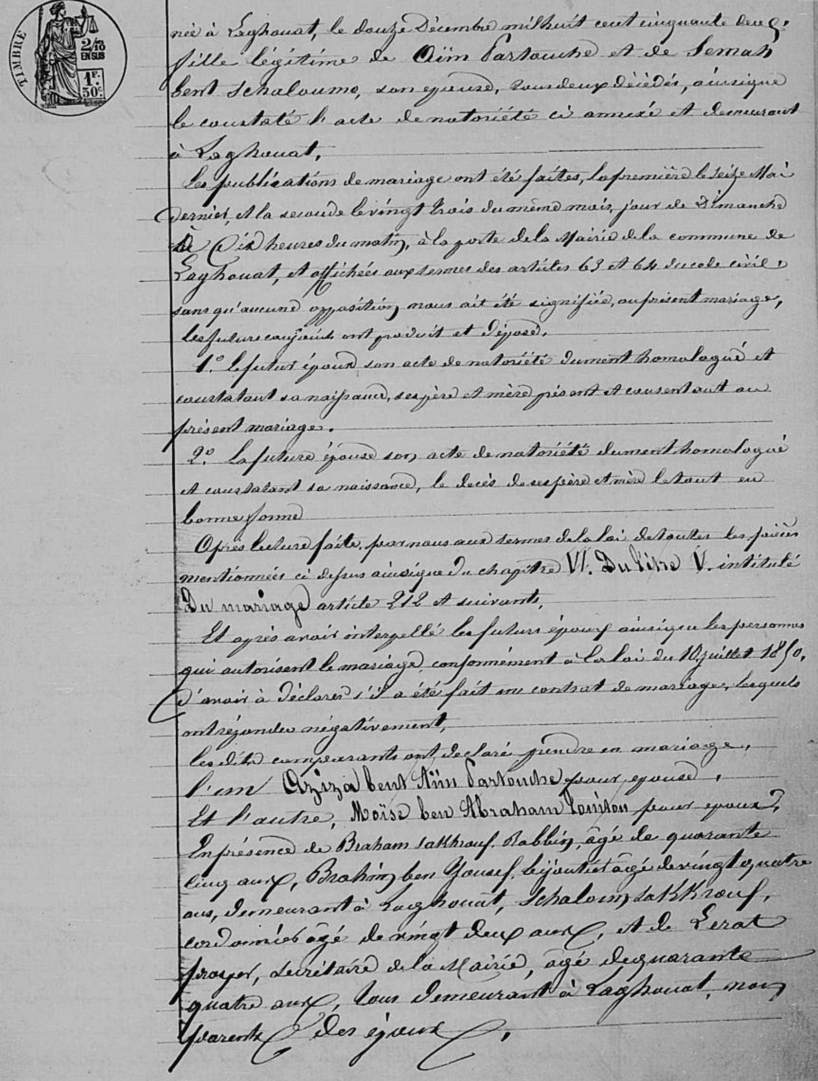 TIMBRE
2/10
EN SUS
1F.
50c.
née à Laghouat, le douze Décembre mil huit cent cinquante deux,
fille légitime de Aïm Partouche et de Semah
bent Schaloumo, son épouse, tous deux décédés, ainsi que
le constaté l'acte de notoriété ci annexé et demeurant
à Laghouat,
Les publications de mariage ont été faites, la première le seize Mai
dernier, et la seconde le vingt trois du même mois, jour de Dimanche
à Dix heures du matin, à la porte de la Mairie de la commune de
Laghouat, et affichées aux termes des articles 63 et 64 du code civil,
sans qu'aucune opposition nous ait été signifiée, au présent mariage,
les futurs conjoints ont produit et déposé,
1.° le futur époux son acte de notoriété dument homologué et
constatant sa naissance, ses père et mère présent et consentant au
présent mariage.
2.° La future épouse son acte de notoriété dument homologué
et constatant sa naissance, le decès de ses père et mère le tout en
bonne forme
Après lecture faite, par nous aux termes de la loi de toutes les pièces
mentionnées ci dessus ainsi que du chapitre VI. Du titre V. intitulé
Du mariage article 212 et suivants,
Et après avoir interpellé les futurs époux ainsi que les personnes
qui autorisent le mariage conformément à la loi du 10 juillet 1850,
d'avoir à déclarer s'il a été fait un contrat de mariage, lesquels
ont répondu négativement,
les dits comparants ont déclaré prendre en mariage,
l'un Aziza bent Aïm Partouche pour épouse,
Et l'autre, Moïse ben Abraham Touitou pour époux,
En présence de Braham Sakkrouf, Rabbin, âgé de quarante
cinq ans, Brahim ben Yousef, bijoutier âgé de vingt quatre
ans, demeurant à Laghouat, Schaloum Sakkrouf,
cordonnier âgé de vingt deux ans, et de Lerat
prosper, secrétaire de la Mairie, âgé de quarante
quatre ans, tous demeurant à Laghouat, non
parents des époux,